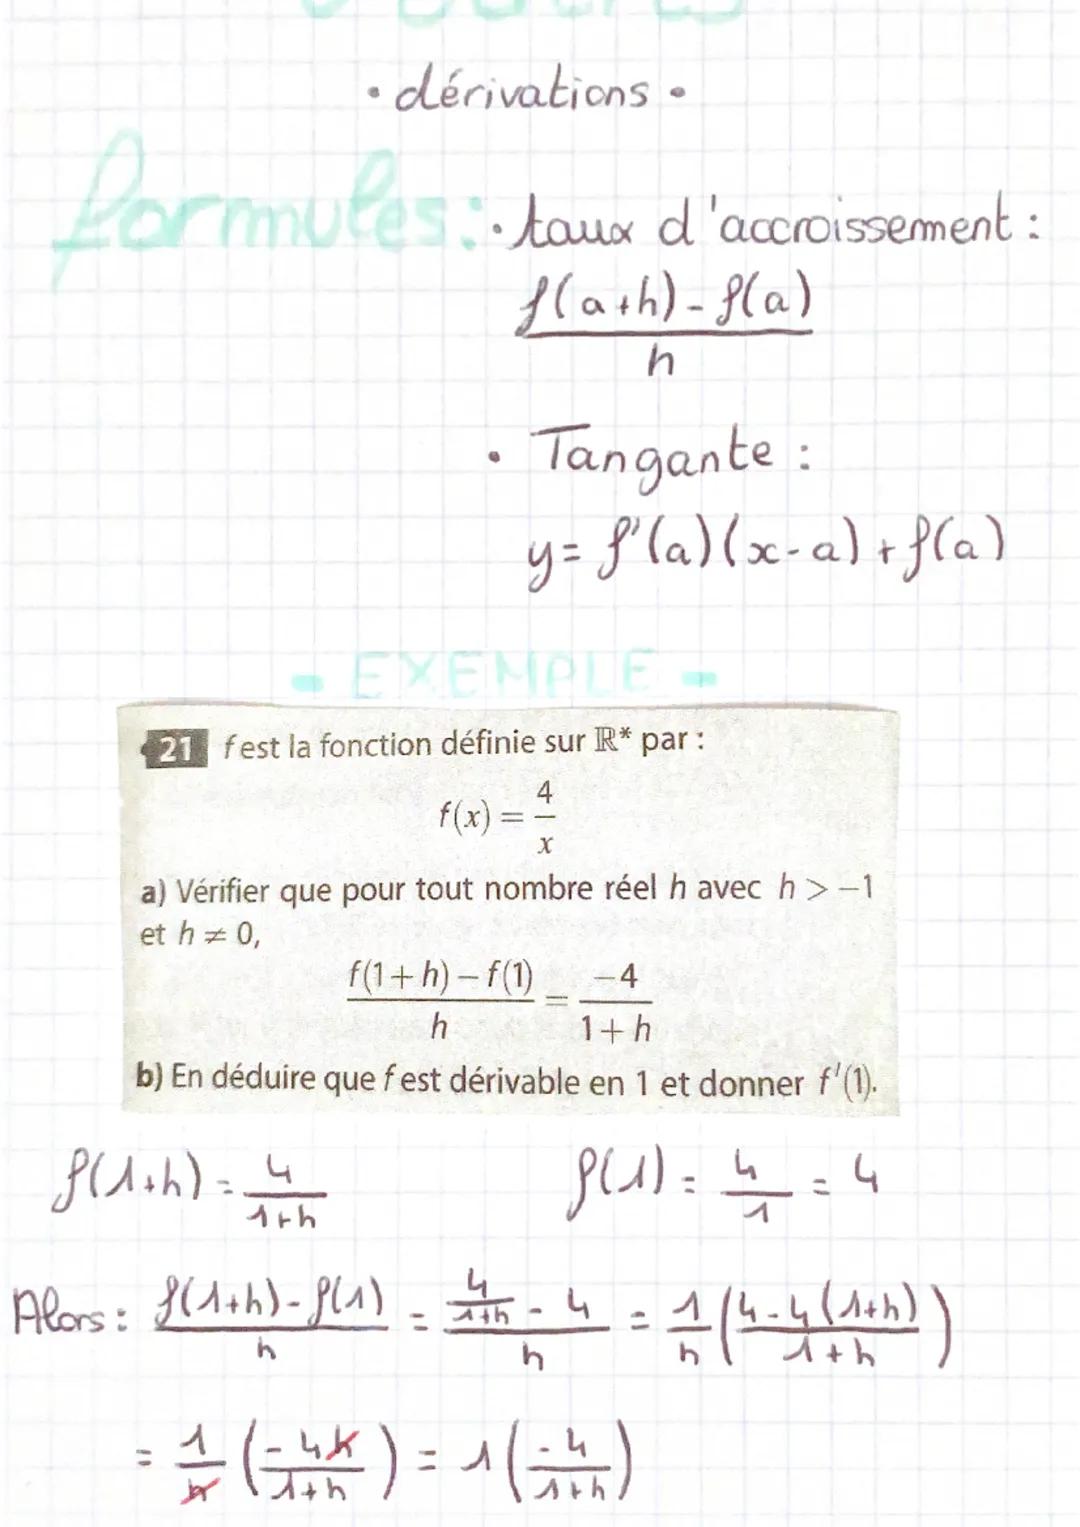 • dérivations •
formules: • taux d'accroissement :
f(a+h) - f(a)
h
• Tangante :
y = f'(a)(x-a) + f(a)
- EXEMPLE -
21 f est la fonction définie sur ℝ* par :
f(x) = 4/x
a) Vérifier que pour tout nombre réel h avec h > −1
et h ≠ 0,
f(1+h) − f(1) / h = −4 / 1+h
b) En déduire que f est dérivable en 1 et donner f'(1).
f(1+h) = 4/(1+h) f(1) = 4/1 = 4
Alors : (f(1+h) - f(1))/h = (4/(1+h) - 4)/h = 1/h ((4-4(1+h))/(1+h))
= 1/h (-4h/(1+h)) = 1(-4/(1+h))